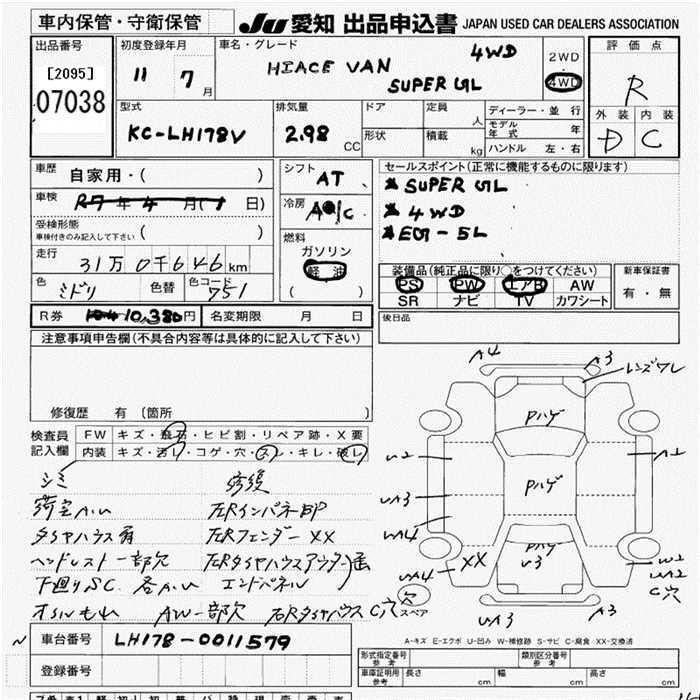 車内保管・守衛保管
JU 愛知 出品申込書 JAPAN USED CAR DEALERS ASSOCIATION
出品番号
[2095]
07038
初度登録年月
11 7 月
車名・グレード
HIACE VAN 4WD
SUPER GL
2WD
4WD
評価点
R
外装 内装
D C
型式
KC-LH178V
排気量
2.98 CC
ドア
形状
定員 人
積載 kg
ディーラー・並行
モデル年式 年
ハンドル 左・右
車歴
自家用・( )
車検
R7年4月( 日)
受検形態
車検付きのみ記入して下さい ( )
走行
31万0千646km
色
ミドリ
色替
色コード
751
シフト
AT
冷房
A/C
燃料
ガソリン
軽油
( )
セールスポイント(正常に機能するものに限ります)
SUPER GL
4WD
EG-5L
装備品(純正品に限り○をつけてください)
PS PW エアB AW
SR ナビ TV カワシート
新車保証書
有・無
R券 10,380円
名変期限 月 日
後日品
注意事項申告欄(不具合内容等は具体的に記入して下さい)
修復歴 有 (箇所 )
検査員
記入欄
FW キズ・飛石・ヒビ割・リペア跡・X要
内装 キズ・汚レ・コゲ・穴・スレ・キレ・破レ
シミ 修復
荷室A.U 左Rインパネ凹P
タイヤハウス有 左Rフェンダー XX
ヘッドレスト一部欠 左Rタイヤハウスアウター
下廻りSC. 各A.U エンドパネル
オイルもれ AW一部欠 左RタイヤハウスC穴
A4
A3
レンズワレ
Pハゲ
Pハゲ
Pハゲ
U3
U2
UA3
UA4
UA4
XX
A2
W2
UA2
C穴
穴
スペア
UA3
A3
A-キズ E-エクボ U-凹み W-補修跡 S-サビ C-腐食 XX-交換済
車台番号
LH178-0011579
登録番号
形式指定番号
参考
類別区分番号
参考
車庫証明用
参考
長さ cm
幅 cm
高さ cm